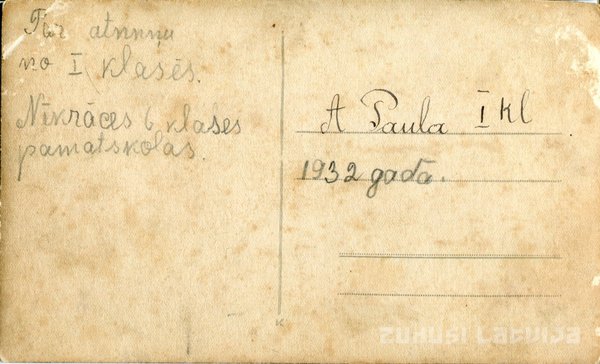 Par atmiņu
no I klasēs.
Nīkrāces 6 klases
pamatskolas.
A Paula I kl
1932 gada.
ZUDUSI LATVIJA